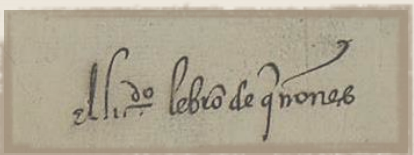 el liçdo lebrõ de q̃nones